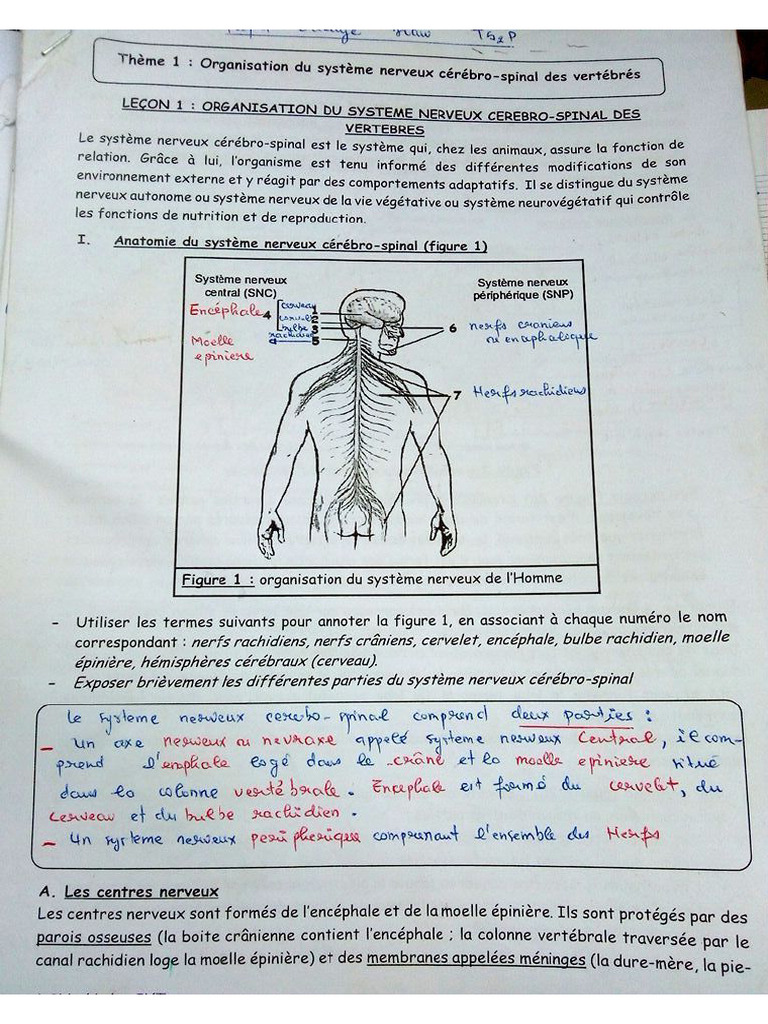 TS2P
Thème 1 : Organisation du système nerveux cérébro-spinal des vertébrés
LEÇON 1 : ORGANISATION DU SYSTEME NERVEUX CEREBRO-SPINAL DES
VERTEBRES
Le système nerveux cérébro-spinal est le système qui, chez les animaux, assure la fonction de
relation. Grâce à lui, l'organisme est tenu informé des différentes modifications de son
environnement externe et y réagit par des comportements adaptatifs. Il se distingue du système
nerveux autonome ou système nerveux de la vie végétative ou système neurovégétatif qui contrôle
les fonctions de nutrition et de reproduction.
I. Anatomie du système nerveux cérébro-spinal (figure 1)
Système nerveux
central (SNC)
Système nerveux
périphérique (SNP)
Encéphale 4
cerveau 1
cervelet 2
bulbe 3
rachidien
5
Moelle
epiniere
6 nerfs craniens
ou encephalique
7 Nerfs rachidiens
Figure 1 : organisation du système nerveux de l'Homme
- Utiliser les termes suivants pour annoter la figure 1, en associant à chaque numéro le nom
correspondant : nerfs rachidiens, nerfs crâniens, cervelet, encéphale, bulbe rachidien, moelle
épinière, hémisphères cérébraux (cerveau).
- Exposer brièvement les différentes parties du système nerveux cérébro-spinal
Le systeme nerveux cerebo-spinal comprend deux parties :
- Un axe nerveux ou nevraxe appelé systeme nerveux Central, il com-
prend l'enphale logé dans le crâne et la moelle epiniere situé
dans la colonne vertébrale. Encephale est formé du cervelet, du
cerveau et du bulbe rachidien.
- Un systeme nerveux peripherique comprenant l'ensemble des Nerfs
A. Les centres nerveux
Les centres nerveux sont formés de l'encéphale et de la moelle épinière. Ils sont protégés par des
parois osseuses (la boite crânienne contient l'encéphale ; la colonne vertébrale traversée par le
canal rachidien loge la moelle épinière) et des membranes appelées méninges (la dure-mère, la pie-